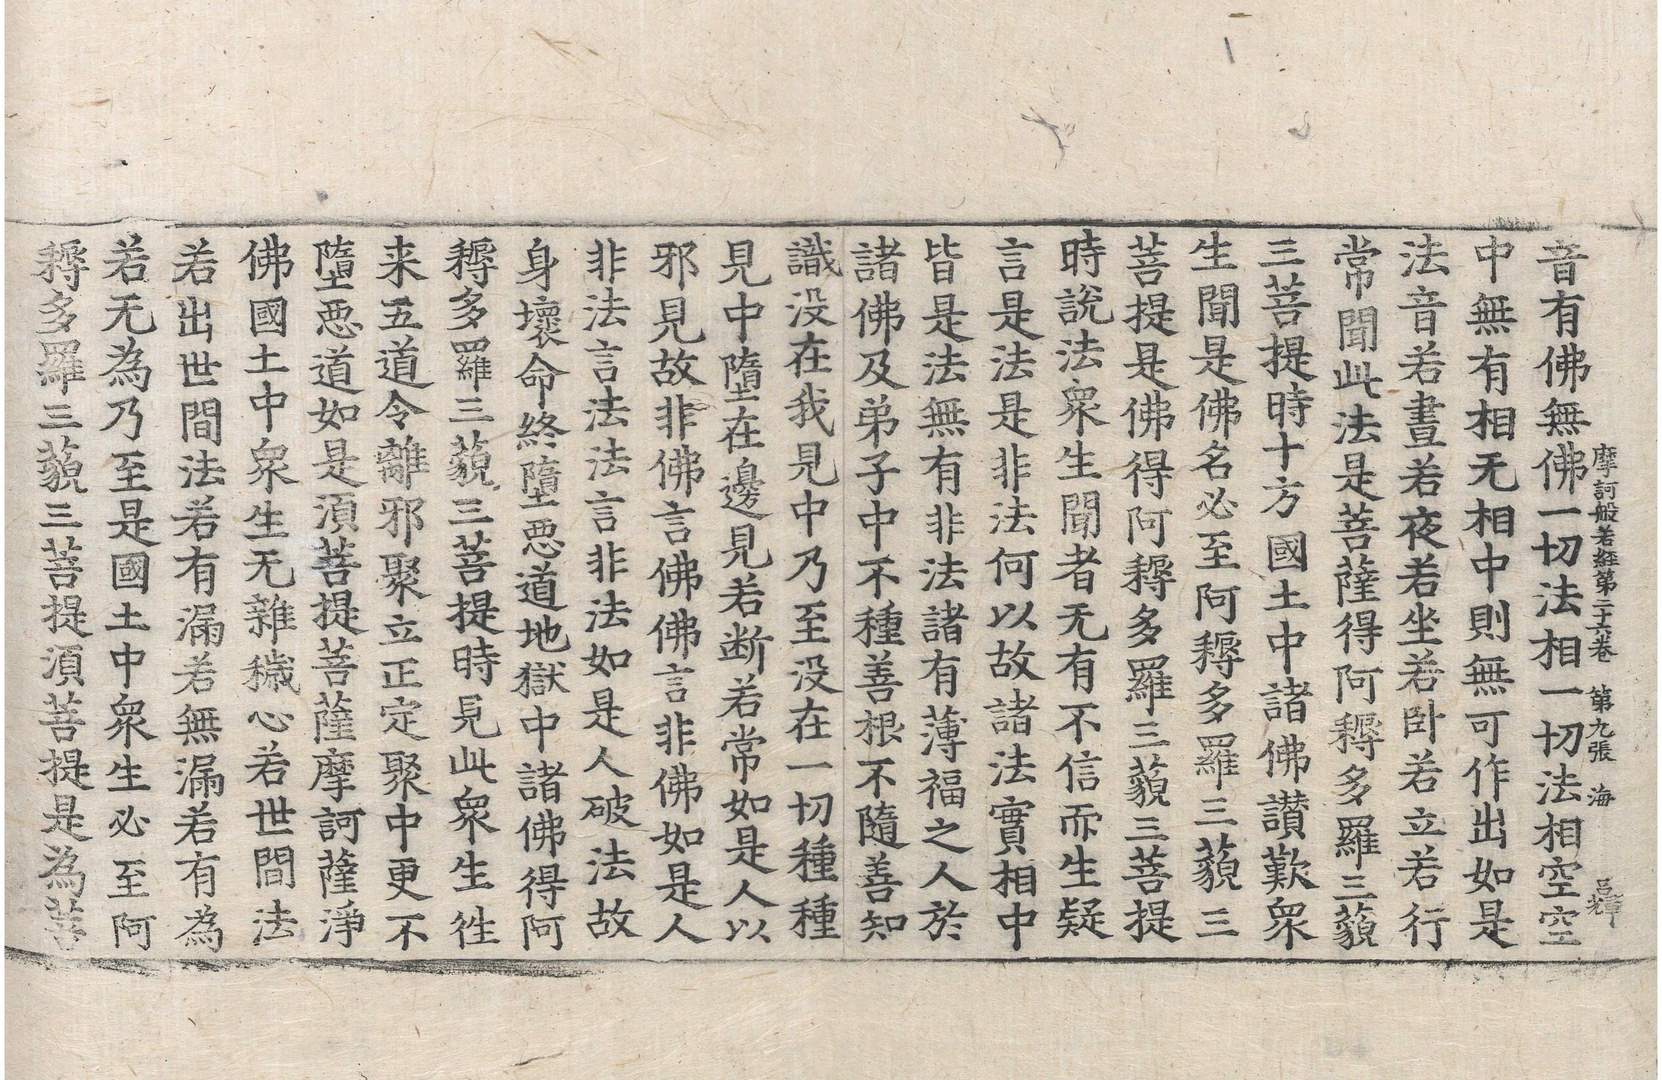 摩訶般若經第二十六卷 第九張 海
音有佛無佛一切法相一切法相空空
中無有相无相中則無可作出如是
法音若晝若夜若坐若卧若立若行
常聞此法是菩薩得阿耨多羅三藐
三菩提時十方國土中諸佛讃歎衆
生聞是佛名必至阿耨多羅三藐三
菩提是佛得阿耨多羅三藐三菩提
時說法衆生聞者无有不信而生疑
言是法是非法何以故諸法實相中
皆是法無有非法諸有薄福之人於
諸佛及弟子中不種善根不隨善知
識没在我見中乃至没在一切種種
見中墮在邊見若断若常如是人以
邪見故非佛言佛佛言非佛如是人
非法言法法言非法如是人破法故
身壞命終墮惡道地獄中諸佛得阿
耨多羅三藐三菩提時見此衆生徃
来五道令離邪聚立正定聚中更不
墮惡道如是湏菩提菩薩摩訶薩淨
佛國土中衆生无雜穢心若世間法
若出世間法若有漏若無漏若有為
若无為乃至是國土中衆生必至阿
耨多羅三藐三菩提湏菩提是為菩